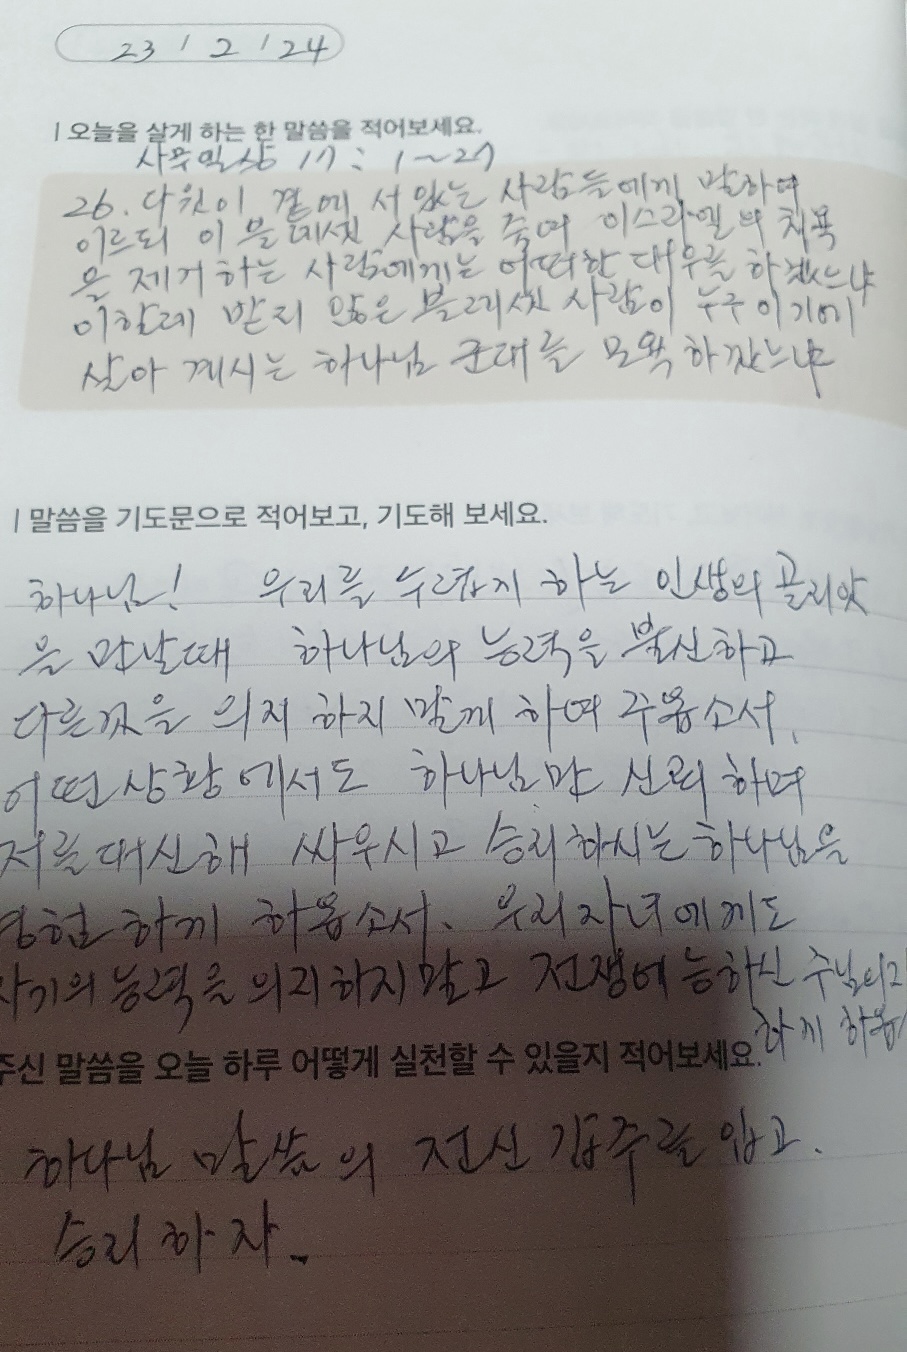 23 / 2 / 24
| 오늘을 살게 하는 한 말씀을 적어보세요.
사무엘상 17 : 1 ~ 27
26. 다윗이 곁에 서 있는 사람들에게 말하여
이르되 이 블레셋 사람을 죽여 이스라엘의 치욕
을 제거하는 사람에게는 어떠한 대우를 하겠느냐
이 할례 받지 않은 블레셋 사람이 누구이기에
살아 계시는 하나님 군대를 모욕하겠느냐
| 말씀을 기도문으로 적어보고, 기도해 보세요.
하나님! 우리를 두렵게 하는 인생의 골리앗
을 만날때 하나님의 능력을 불신하고
다른것을 의지 하지 말게 하여 주옵소서.
어떤 상황에서도 하나님만 신뢰하며
저를 대신해 싸우시고 승리하시는 하나님을
경험하게 하옵소서. 우리자녀에게도
자기의 능력을 의지하지말고 전쟁에 능하신 주님의지
하게 하옵
주신 말씀을 오늘 하루 어떻게 실천할 수 있을지 적어보세요.
하나님 말씀의 전신갑주를 입고.
승리하자.